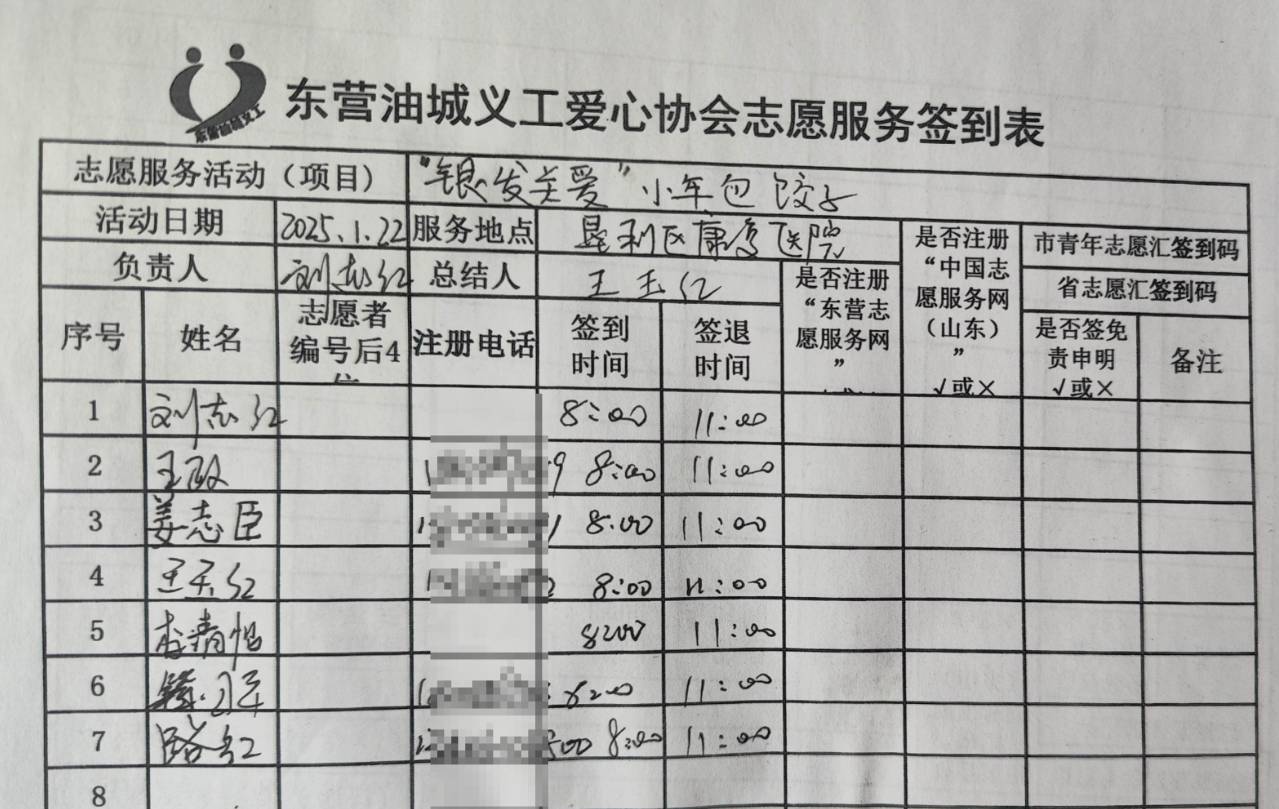 东营油城义工
东营油城义工爱心协会志愿服务签到表
志愿服务活动（项目） “银发关爱”小年包饺子
活动日期 2025.1.22 服务地点 垦利区康复医院 是否注册“中国志愿服务网（山东）” √或× 市青年志愿汇签到码
负责人 刘志红 总结人 王玉红 是否注册“东营志愿服务网” 省志愿汇签到码
序号 姓名 志愿者编号后4位 注册电话 签到时间 签退时间 是否签免责申明 √或× 备注
1 刘志红 8:00 11:00
2 王敏 9 8:00 11:00
3 姜志臣 8:00 11:00
4 王玉红 2 8:00 11:00
5 8:00 11:00
6 8:00 11:00
7 路红 00 8:00 11:00
8